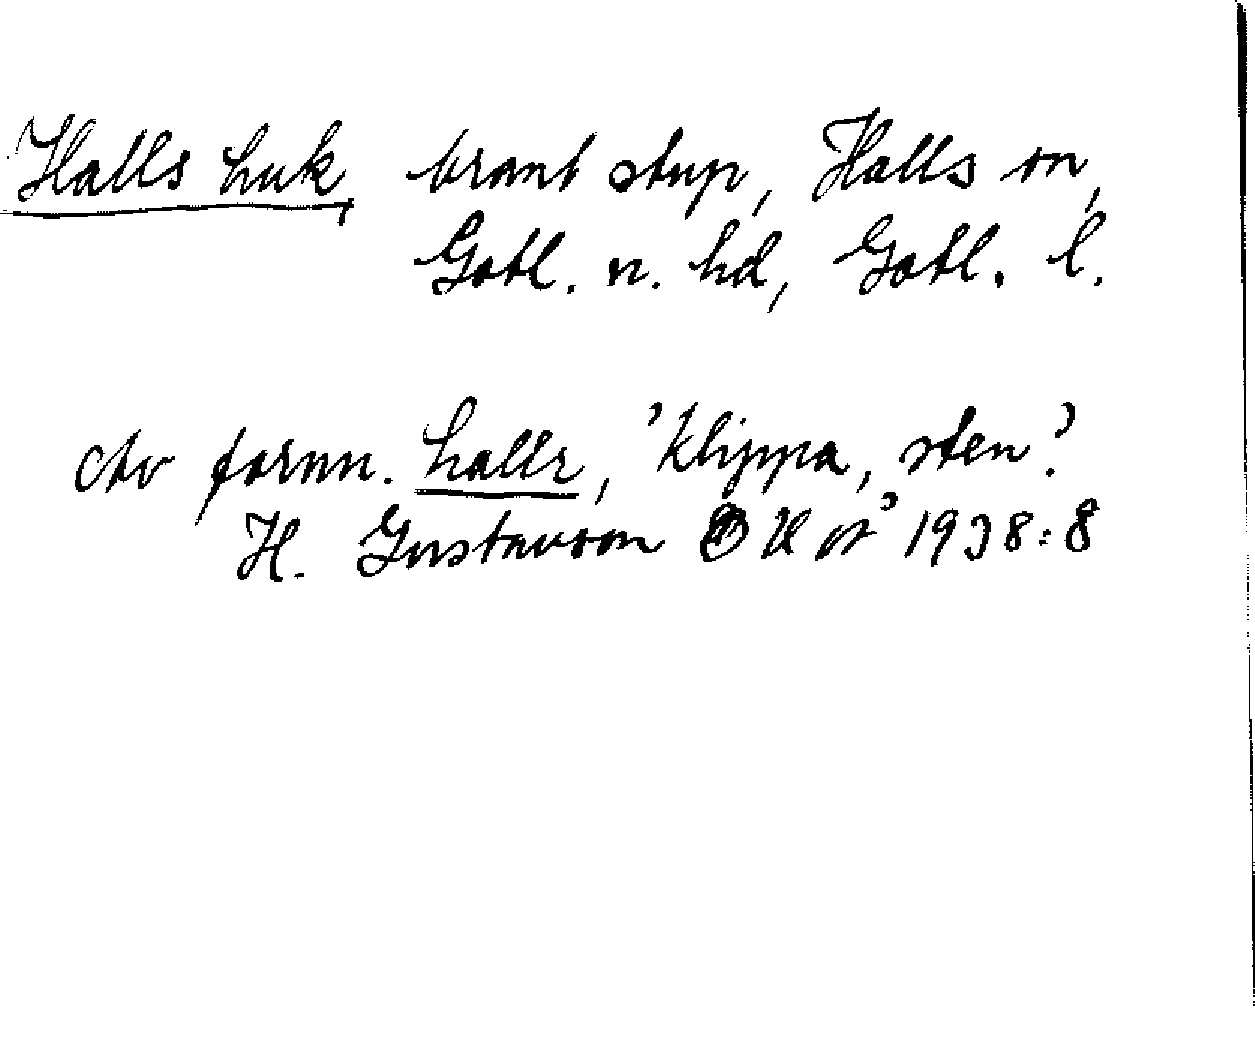 Halls huk, brant stup, Halls sn,
Gotl. n. hd, Gotl. l.
Av fornn. hallr, 'klippa, sten'?
H. Gustavson 1938:8